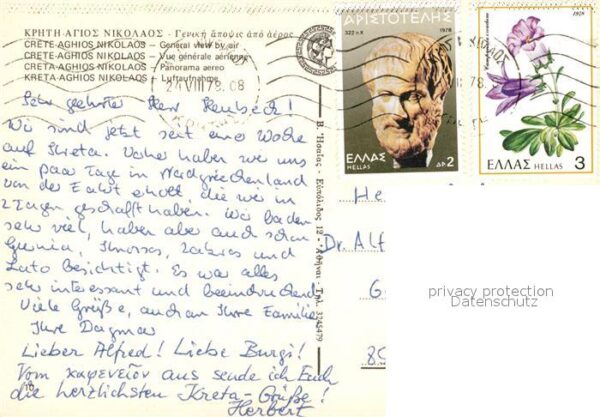 ΚΡΗΤΗ-ΑΓΙΟΣ ΝΙΚΟΛΑΟΣ - Γενική ἄποψις ἀπό ἀέρος
CRETE-AGHIOS NIKOLAOS – General view by air
CRETE-AGHIOS NIKOLAOS – Vue générale aérienne
CRETE-AGHIOS NIKOLAOS – Panorama aereo
KRETA-AGHIOS NIKOLAOS – Luftaufnahme
24 VIII 78. 08
Sehr geehrter Herr
Wir sind jetzt seit einer Woche
auf Kreta. Vorher haben wir uns
ein paar Tage in Nordgriechenland
von der Fahrt erholt, die wir in
2 Tagen geschafft haben. Wir baden
sehr viel, haben aber auch schon
Gurnia, Knossos, Zakros und
Lato besichtigt. Es war alles
sehr interessant und beeindruckend.
Viele Grüße, auch an Ihre Familie
Ihre Dagmar
Lieber Alfred! Liebe Burgi!
Vom καφενεῖον aus sende ich Euch
die herzlichsten Kreta-Grüße!
Herbert
10
Εὐπόλιδος 12 - Ἀθῆναι Τηλ. 3245479
ΑΡΙΣΤΟΤΕΛΗΣ
322 π.Χ 1978
ΕΛΛΑΣ
HELLAS
ΔΡ. 2
1978
ΕΛΛΑΣ HELLAS 3
78.
He
Dr. Alf
G
85
privacy protection
Datenschutz